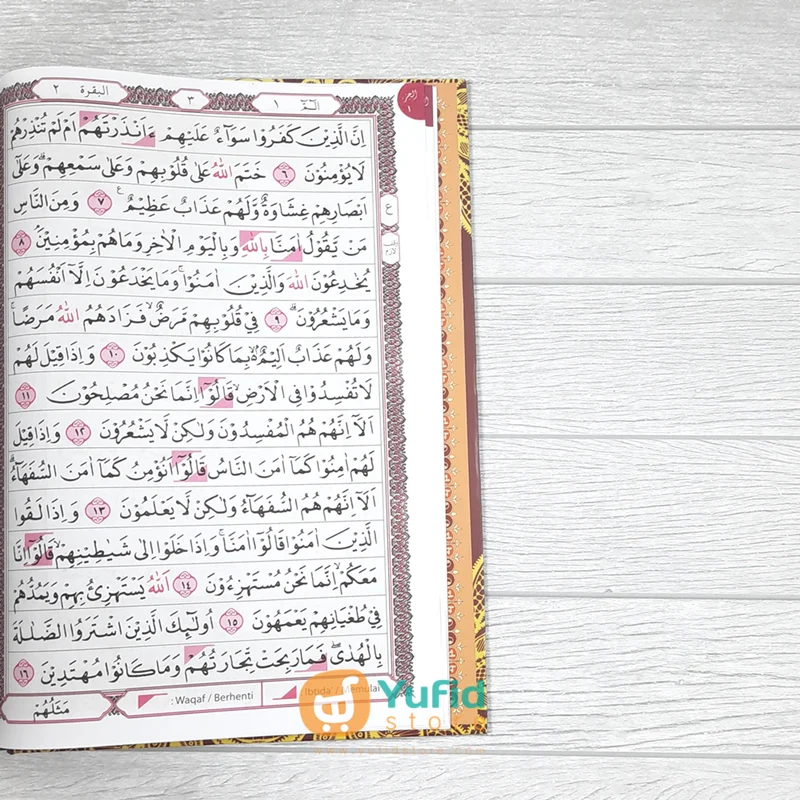 البقرة ٢
٣
الٓمّٓ ١
الجزء ١
اِنَّ الَّذِيْنَ كَفَرُوْا سَوَاۤءٌ عَلَيْهِمْ ءَاَنْذَرْتَهُمْ اَمْ لَمْ تُنْذِرْهُمْ
لَا يُؤْمِنُوْنَ ٦ خَتَمَ اللّٰهُ عَلٰى قُلُوْبِهِمْ وَعَلٰى سَمْعِهِمْ ۗ وَعَلٰٓى
اَبْصَارِهِمْ غِشَاوَةٌ وَّلَهُمْ عَذَابٌ عَظِيْمٌ ࣖ ٧ وَمِنَ النَّاسِ
مَنْ يَّقُوْلُ اٰمَنَّا بِاللّٰهِ وَبِالْيَوْمِ الْاٰخِرِ وَمَا هُمْ بِمُؤْمِنِيْنَۘ ٨
يُخٰدِعُوْنَ اللّٰهَ وَالَّذِيْنَ اٰمَنُوْا ۚ وَمَا يَخْدَعُوْنَ اِلَّآ اَنْفُسَهُمْ
وَمَا يَشْعُرُوْنَۗ ٩ فِيْ قُلُوْبِهِمْ مَّرَضٌۙ فَزَادَهُمُ اللّٰهُ مَرَضًاۚ
وَلَهُمْ عَذَابٌ اَلِيْمٌ ۢ ەۙ بِمَا كَانُوْا يَكْذِبُوْنَ ١٠ وَاِذَا قِيْلَ لَهُمْ
لَا تُفْسِدُوْا فِى الْاَرْضِۙ قَالُوْٓا اِنَّمَا نَحْنُ مُصْلِحُوْنَ ١١
اَلَآ اِنَّهُمْ هُمُ الْمُفْسِدُوْنَ وَلٰكِنْ لَّا يَشْعُرُوْنَ ١٢ وَاِذَا قِيْلَ
لَهُمْ اٰمِنُوْا كَمَآ اٰمَنَ النَّاسُ قَالُوْٓا اَنُؤْمِنُ كَمَآ اٰمَنَ السُّفَهَاۤءُ ۗ
اَلَآ اِنَّهُمْ هُمُ السُّفَهَاۤءُ وَلٰكِنْ لَّا يَعْلَمُوْنَ ١٣ وَاِذَا لَقُوا
الَّذِيْنَ اٰمَنُوْا قَالُوْٓا اٰمَنَّا ۚ وَاِذَا خَلَوْا اِلٰى شَيٰطِيْنِهِمْۙ قَالُوْٓا اِنَّا
مَعَكُمْۙ اِنَّمَا نَحْنُ مُسْتَهْزِءُوْنَ ١٤ اَللّٰهُ يَسْتَهْزِئُ بِهِمْ وَيَمُدُّهُمْ
فِيْ طُغْيَانِهِمْ يَعْمَهُوْنَ ١٥ اُولٰۤىِٕكَ الَّذِيْنَ اشْتَرَوُا الضَّلٰلَةَ
بِالْهُدٰىۖ فَمَا رَبِحَتْ تِّجَارَتُهُمْ وَمَا كَانُوْا مُهْتَدِيْنَ ١٦
: Waqaf / Berhenti : Ibtida' / Memulai
مَثَلُهُمْ
Yufid
store